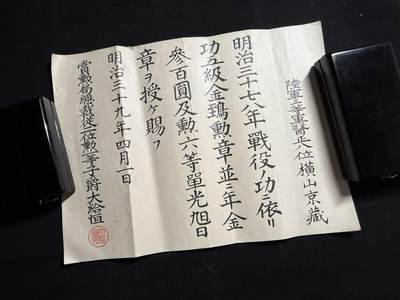 陸軍二等軍醫正七位橫山京藏
明治三十七八年戰役ノ功ニ依リ
功五級金鵄勲章並ニ年金
參百圓及勲六等單光旭日
章ヲ授ケ賜フ
明治三十九年四月一日
賞勲局總裁從二位勲一等子爵大給恒